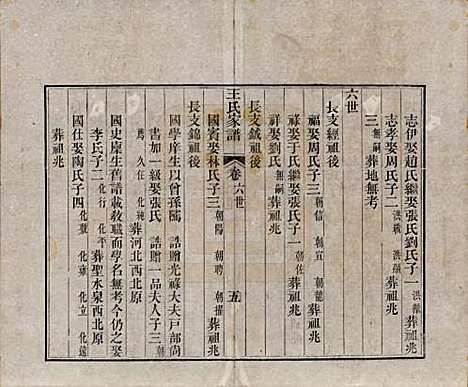 六世
志伊娶趙氏繼娶張氏劉氏子一 洪獻
志孝娶周氏子二 洪戰 洪顯葬祖兆
三 無嗣葬地無考
長支經祖後
福娶周氏子三 朝信 朝宣 朝龍葬祖兆
祿娶于氏繼娶張氏子一 朝佐
祥娶劉氏 無嗣葬祖兆
長支鉞祖後
王氏家譜 卷六世 五
國賓娶林氏子三 朝陽 朝聘 朝擢葬祖兆
長支錦祖後
國學庠生以曾孫隲 誥贈光祿大夫戶部尚
書加一級娶張氏 誥贈一品夫人子三
久任 化純 葬河北西北原
國史庠生舊譜載敎職而學名無考今仍之娶
李氏子二 化行 化平 葬聖水泉西北原
國仕娶陶氏子四 化斆 化雍 化立 化遠
葬祖兆